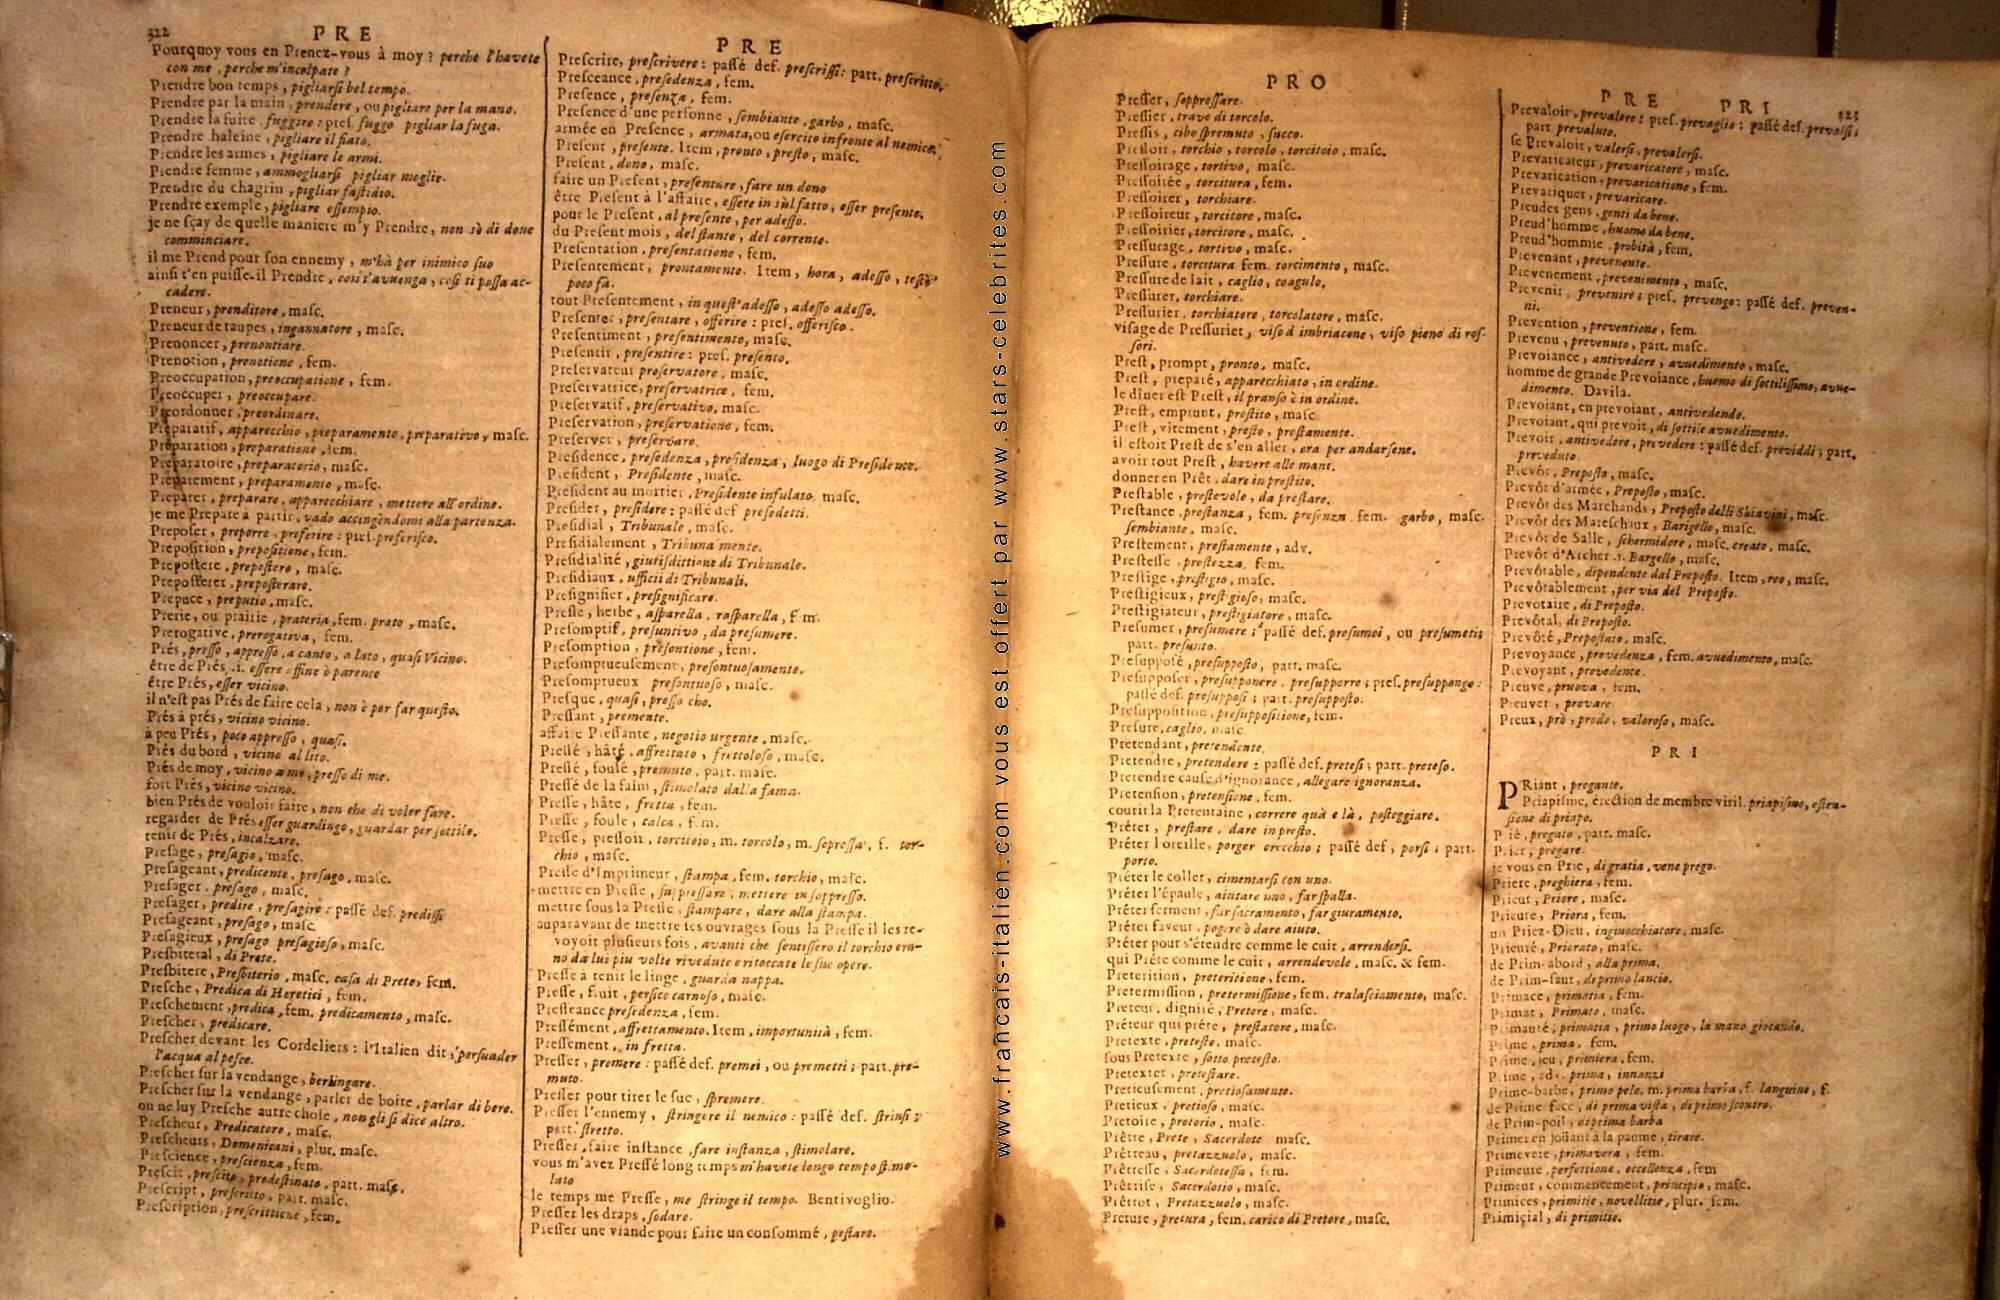 322
PRE
Pourquoy vous en Prenez-vous à moy ? perche l'havete
con me , perche m'incolpate ?
Prendre bon temps , pigliarsi bel tempo.
Prendre par la main , prendere , ou pigliare per la mano.
Prendre la fuite , fuggire : pres. fuggo pigliar la fuga.
Prendre haleine , pigliare il fiato.
Prendre les armes , pigliare le armi.
Prendre femme , ammogliarsi pigliar moglie.
Prendre du chagrin , pigliar fastidio.
Prendre exemple , pigliare essempio.
je ne sçay de quelle maniere m'y Prendre , non sò di doue
comminciare.
il me Prend pour son ennemy , m'hà per inimico suo
ainsi t'en puisse-il Prendre , cosi t'avuenga , cosi ti possa ac-
cadere.
Preneur , prenditore , masc.
Preneur de taupes , ingannatore , masc.
Prenoncer , prenontiare.
Prenotion , prenotione , fem.
Preoccupation , preoccupatione , fem.
Preoccuper , preoccupare.
Preordonner , preordinare.
Preparatif , apparecchio , preparamento , preparativo , masc.
Preparation , preparatione , fem.
Preparatoire , preparatorio , masc.
Preparement , preparamento , masc.
Preparer , preparare , apparecchiare , mettere all'ordine.
je me Prepare à partir , vado accingèndomi alla partenza.
Preposer , preporre , preferire : pres. preferisco.
Preposition , prepositione , fem.
Prepostere , prepostero , masc.
Preposterer , preposterare.
Prepuce , preputio , masc.
Prerie , ou prairie , prateria , fem. prato , masc.
Prerogative , prerogativa , fem.
Prés , presso , appresso , a canto , a lato , quasi Vicino.
être de Prés .i. essere affine è parente
être Prés , esser vicino.
il n'est pas Prés de faire cela , non è per far questo.
Prés à prés , vicino vicino.
à peu Prés , poco appresso , quasi.
Prés du bord , vicino al lito.
Prés de moy , vicino a me , presso di me.
fort Prés , vicino vicino.
bien Prés de vouloir faire , non che di voler fare.
regarder de Prés esser guardingo , guardar per sottile.
tenir de Prés , incalzare.
Presage , presagio , masc.
Presageant , predicente , presago , masc.
Presager , presago , masc.
Presager , predire , presagire : passé def. predissi
Presageant , presago , masc.
Presagieux , presago presagioso , masc.
Presbiteral , di Prete.
Presbitere , Presbiterio , masc. casa di Prete , fem.
Presche , Predica di Heretici , fem.
Preschement , predica , fem. predicamento , masc.
Prescher , predicare.
Prescher devant les Cordeliers : l'Italien dit , persuader
l'acqua al pesce.
Prescher sur la vendange , berlingare.
Prescher sur la vendange , parler de boire , parlar di bere.
on ne luy Presche autre chose , non gli si dice altro.
Prescheur , Predicatore , masc.
Prescheurs , Domenicani , plur. masc.
Prescience , prescienza , fem.
Prescit , prescito , predestinato , part. masc.
Prescript , prescritto , part. masc.
Prescription , prescrittione , fem.
PRE
Prescrire , prescrivere : passé def. prescrissi : part. prescritto.
Presceance , presedenza , fem.
Presence , presenza , fem.
Presence d'une personne , sembiante , garbo , masc.
armée en Presence , armata , ou esercito infronte al nemico.
Present , presente. Item , pronto , presto , masc.
Present , dono , masc.
faire un Present , presentare , fare un dono
être Present à l'affaire , essere in sùl fatto , esser presente.
pour le Present , al presente , per adesso.
du Present mois , del stante , del corrente.
Presentation , presentatione , fem.
Presentement , prontamente. Item , hora , adesso , testè
poco fà.
tout Presentement , in quest'adesso , adesso adesso.
Presenter , presentare , offerire : pres. offerisco.
Presentiment , presentimento , masc.
Presentir , presentire : pres. presento.
Preservateur preservatore , masc.
Preservatrice , preservatrice , fem.
Preservatif , preservativo , masc.
Preservation , preservatione , fem.
Preserver , preservare.
Presidence , presedenza , presidenza , luogo di Presidente.
President , Presidente , masc.
President au mortier , Presidente infulato masc.
Presider , presidere : passé def presedetti.
Presidial , Tribunale , masc.
Presidialement , Tribunalmente.
Presidialité , giurisdittione di Tribunale.
Presidiaux , ufficii di Tribunali.
Presignifier , presignificare.
Presle , herbe , asparella , rasparella , fem.
Presomptif , presuntivo , da presumere.
Presomption , presontione , fem.
Presomptueusement , presontuosamente.
Presomptueux presontuoso , masc.
Presque , quasi , presso che.
Pressant , premente.
affaire Pressante , negotio urgente , masc.
Pressé , hâté , affrettato , frettoloso , masc.
Pressé , foulé , premuto , part. masc.
Pressé de la faim , stimolato dalla fama.
Presse , hâte , fretta , fem.
Presse , foule , calca , fem.
Presse , pressoir , torcitoio , m. torcolo , m. sopressa , f. tor-
chio , masc.
Presse d'Imprimeur , stampa , fem. torchio , masc.
mettre en Presse , suppressare , mettere in soppresso.
mettre sous la Presse , stampare , dare alla stampa.
auparavant de mettre les ouvrages sous la Presse il les re-
voyoit plusieurs fois , avanti che sentissero il torchio era-
no da lui piu volte rivedute e ritoccate le sue opere.
Presse à tenir le linge , guarda nappa.
Presse , fruit , persico carnoso , masc.
Presseance presedenza , fem.
Pressément , affrettamento. Item , importunità , fem.
Pressement , in fretta.
Presser , premere : passé def. premei , ou premetti ; part. pre-
muto.
Presser pour tirer le suc , spremere.
Presser l'ennemy , stringere il nemico : passé def. strinsi ;
part. stretto.
Presser , faire instance , fare instanza , stimolare.
vous m'avez Pressé long temps m'havete longo tempo stimo-
lato
le temps me Presse , me stringe il tempo. Bentivoglio.
Presser les draps , sodare.
Presser une viande pour faire un consommé , pestare.
www.francais-italien.com vous est offert par www.stars-celebrites.com
PRO
Presser , soppressare.
Pressier , trave di torcolo.
Pressis , cibo spremuto , succo.
Pressoir , torchio , torcolo , torcitoio , masc.
Pressoirage , tortivo , masc.
Pressoirée , torcitura , fem.
Pressoirer , torchiare.
Pressoireur , torcitore , masc.
Pressoirier , torcitore , masc.
Pressurage , tortivo , masc.
Pressure , torcitura fem. torcimento , masc.
Pressure de lait , caglio , coagulo.
Pressurer , torchiare.
Pressurier , torchiatore , torcolatore , masc.
visage de Pressurier , viso d imbriacone , viso pieno di ros-
sori.
Prest , prompt , pronto , masc.
Prest , preparé , apparecchiato , in ordine.
le diner est Prest , il pranso è in ordine.
Prest , emprunt , prestito , masc.
Prest , vitement , presto , prestamente.
il estoit Prest de s'en aller , era per andarsene.
avoir tout Prest , havere alle mani.
donner en Prêt , dare in prestito.
Prestable , prestevole , da prestare.
Prestance , prestanza , fem. presenza fem. garbo , masc.
sembiante , masc.
Prestement , prestamente , adv.
Prestesse , prestezza fem.
Prestige , prestigio , masc.
Prestigieux , prestigioso , masc.
Prestigiateur , prestigiatore , masc.
Presumer , presumere ; passé def. presumei , ou presumetti ;
part. presunto.
Presupposé , presupposto , part. masc.
Presupposer , presupponere , presupporre ; pres. presuppongo :
passé def. presupposi ; part. presupposto.
Presupposition , presuppositione , fem.
Presure , caglio , masc.
Pretendant , pretendente.
Pretendre , pretendere : passé def. pretesi ; part. preteso.
Pretendre cause d'ignorance , allegare ignoranza.
Pretension , pretensione , fem.
courir la Pretentaine , correre quà e là , posteggiare.
Préter , prestare , dare in presto.
Préter l oreille , porger orecchio ; passé def , porsi ; part.
porto.
Préter le collet , cimentarsi con uno.
Préter l'épaule , aiutare uno , far spalla.
Préter serment , far sacramento , far giuramento.
Préter faveur , pogere ò dare aiuto.
Préter pour s'étendre comme le cuir , arrendersi.
qui Préte comme le cuir , arrendevole , masc. & fem.
Preterition , preteritione , fem.
Pretermission , pretermissione , fem. tralasciamento , masc.
Preteur , dignité , Pretore , masc.
Préteur qui préte , prestatore , masc.
Pretexte , pretesto , masc.
sous Pretexte , sotto pretesto.
Pretexter , pretestare.
Pretieusement , pretiosamente.
Pretieux , pretioso , masc.
Pretoire , pretorio , masc.
Prêtre , Prete , Sacerdote masc.
Prêtreau , pretazzuolo , masc.
Prêtresse , Sacerdotessa , fem.
Prêtrise , Sacerdotio , masc.
Prêtrot , Pretazzuolo , masc.
Preture , pretura , fem. carico di Pretore , masc.
PRE PRI
323
Prevaloir , prevalere : pres. prevaglio : passé def. prevalsi ;
part prevaluto.
se Prevaloir , valersi , prevalersi.
Prevaricateur , prevaricatore , masc.
Prevarication , prevaricatione , fem.
Prevariquer , prevaricare.
Preudes gens , genti da bene.
Preud'homme , huomo da bene.
Preud'hommie , probità , fem.
Prevenant , prevenente.
Prevenement , prevenimento , masc.
Prevenir , prevenire ; pres. prevengo : passé def. preven-
ni.
Prevention , preventione , fem.
Prevenu , prevenuto , part. masc.
Prevoiance , antivedere , avuedimento , masc.
homme de grande Prevoiance , huomo di sottilissimo , avue-
dimento. Davila.
Prevoiant , en prevoiant , antivedendo.
Prevoiant , qui prevoit , di sottile avuedimento.
Prevoir , antivedere , prevedere : passé def. previddi ; part.
preveduto.
Prevôt , Preposto , masc.
Prevôt d'armée , Preposto , masc.
Prevôt des Marchands , Preposto delli Shiavini , masc.
Prevôt des Mareschaux , Barigello , masc.
Prevôt de Salle , schermidore , masc. creato , masc.
Prevôt d'Archer .i. Bargello , masc.
Prevôtable , dipendente dal Preposto. Item , reo , masc.
Prevôtablement , per via del Preposto.
Prevotaire , di Preposto.
Prevôtal , di Preposto.
Prevôté , Prepostato , masc.
Prevoyance , prevedenza , fem. avuedimento , masc.
Prevoyant , prevedente.
Preuve , pruova , fem.
Preuver , provare
Preux , prò , prode , valoroso , masc.
PRI
PRiant , pregante.
Priapisme , érection de membre viril. priapismo , esten-
sione di priapo.
Prié , pregato , part. masc.
Prier , pregare.
je vous en Prie , di gratia , vene prego.
Priere , preghiera , fem.
Prieur , Priore , masc.
Prieure , Priora , fem.
un Priez-Dieu , inginocchiatore , masc.
Prieuré , Priorato , masc.
de Prim-abord , alla prima.
de Prim-saut , di primo lancio.
Primace , primatia , fem.
Primat , Primato , masc.
Primauté , primatia , primo luogo , la mano giocando.
Prime , prima , fem.
Prime , jeu , primiera , fem.
Prime , adv. prima , innanzi
Prime-barbe , primo pelo , m. prima barba , f. languine , f.
de Prime face , di prima vista , di primo scontro.
de Prim-poil , di prima barba
Primer en joüant à la paume , tirare.
Primevere , primavera , fem.
Primeure , perfettione , eccellenza , fem
Primeur , commencement , principio , masc.
Primices , primitie , novellitie , plur. fem.
Primicial , di primitie.